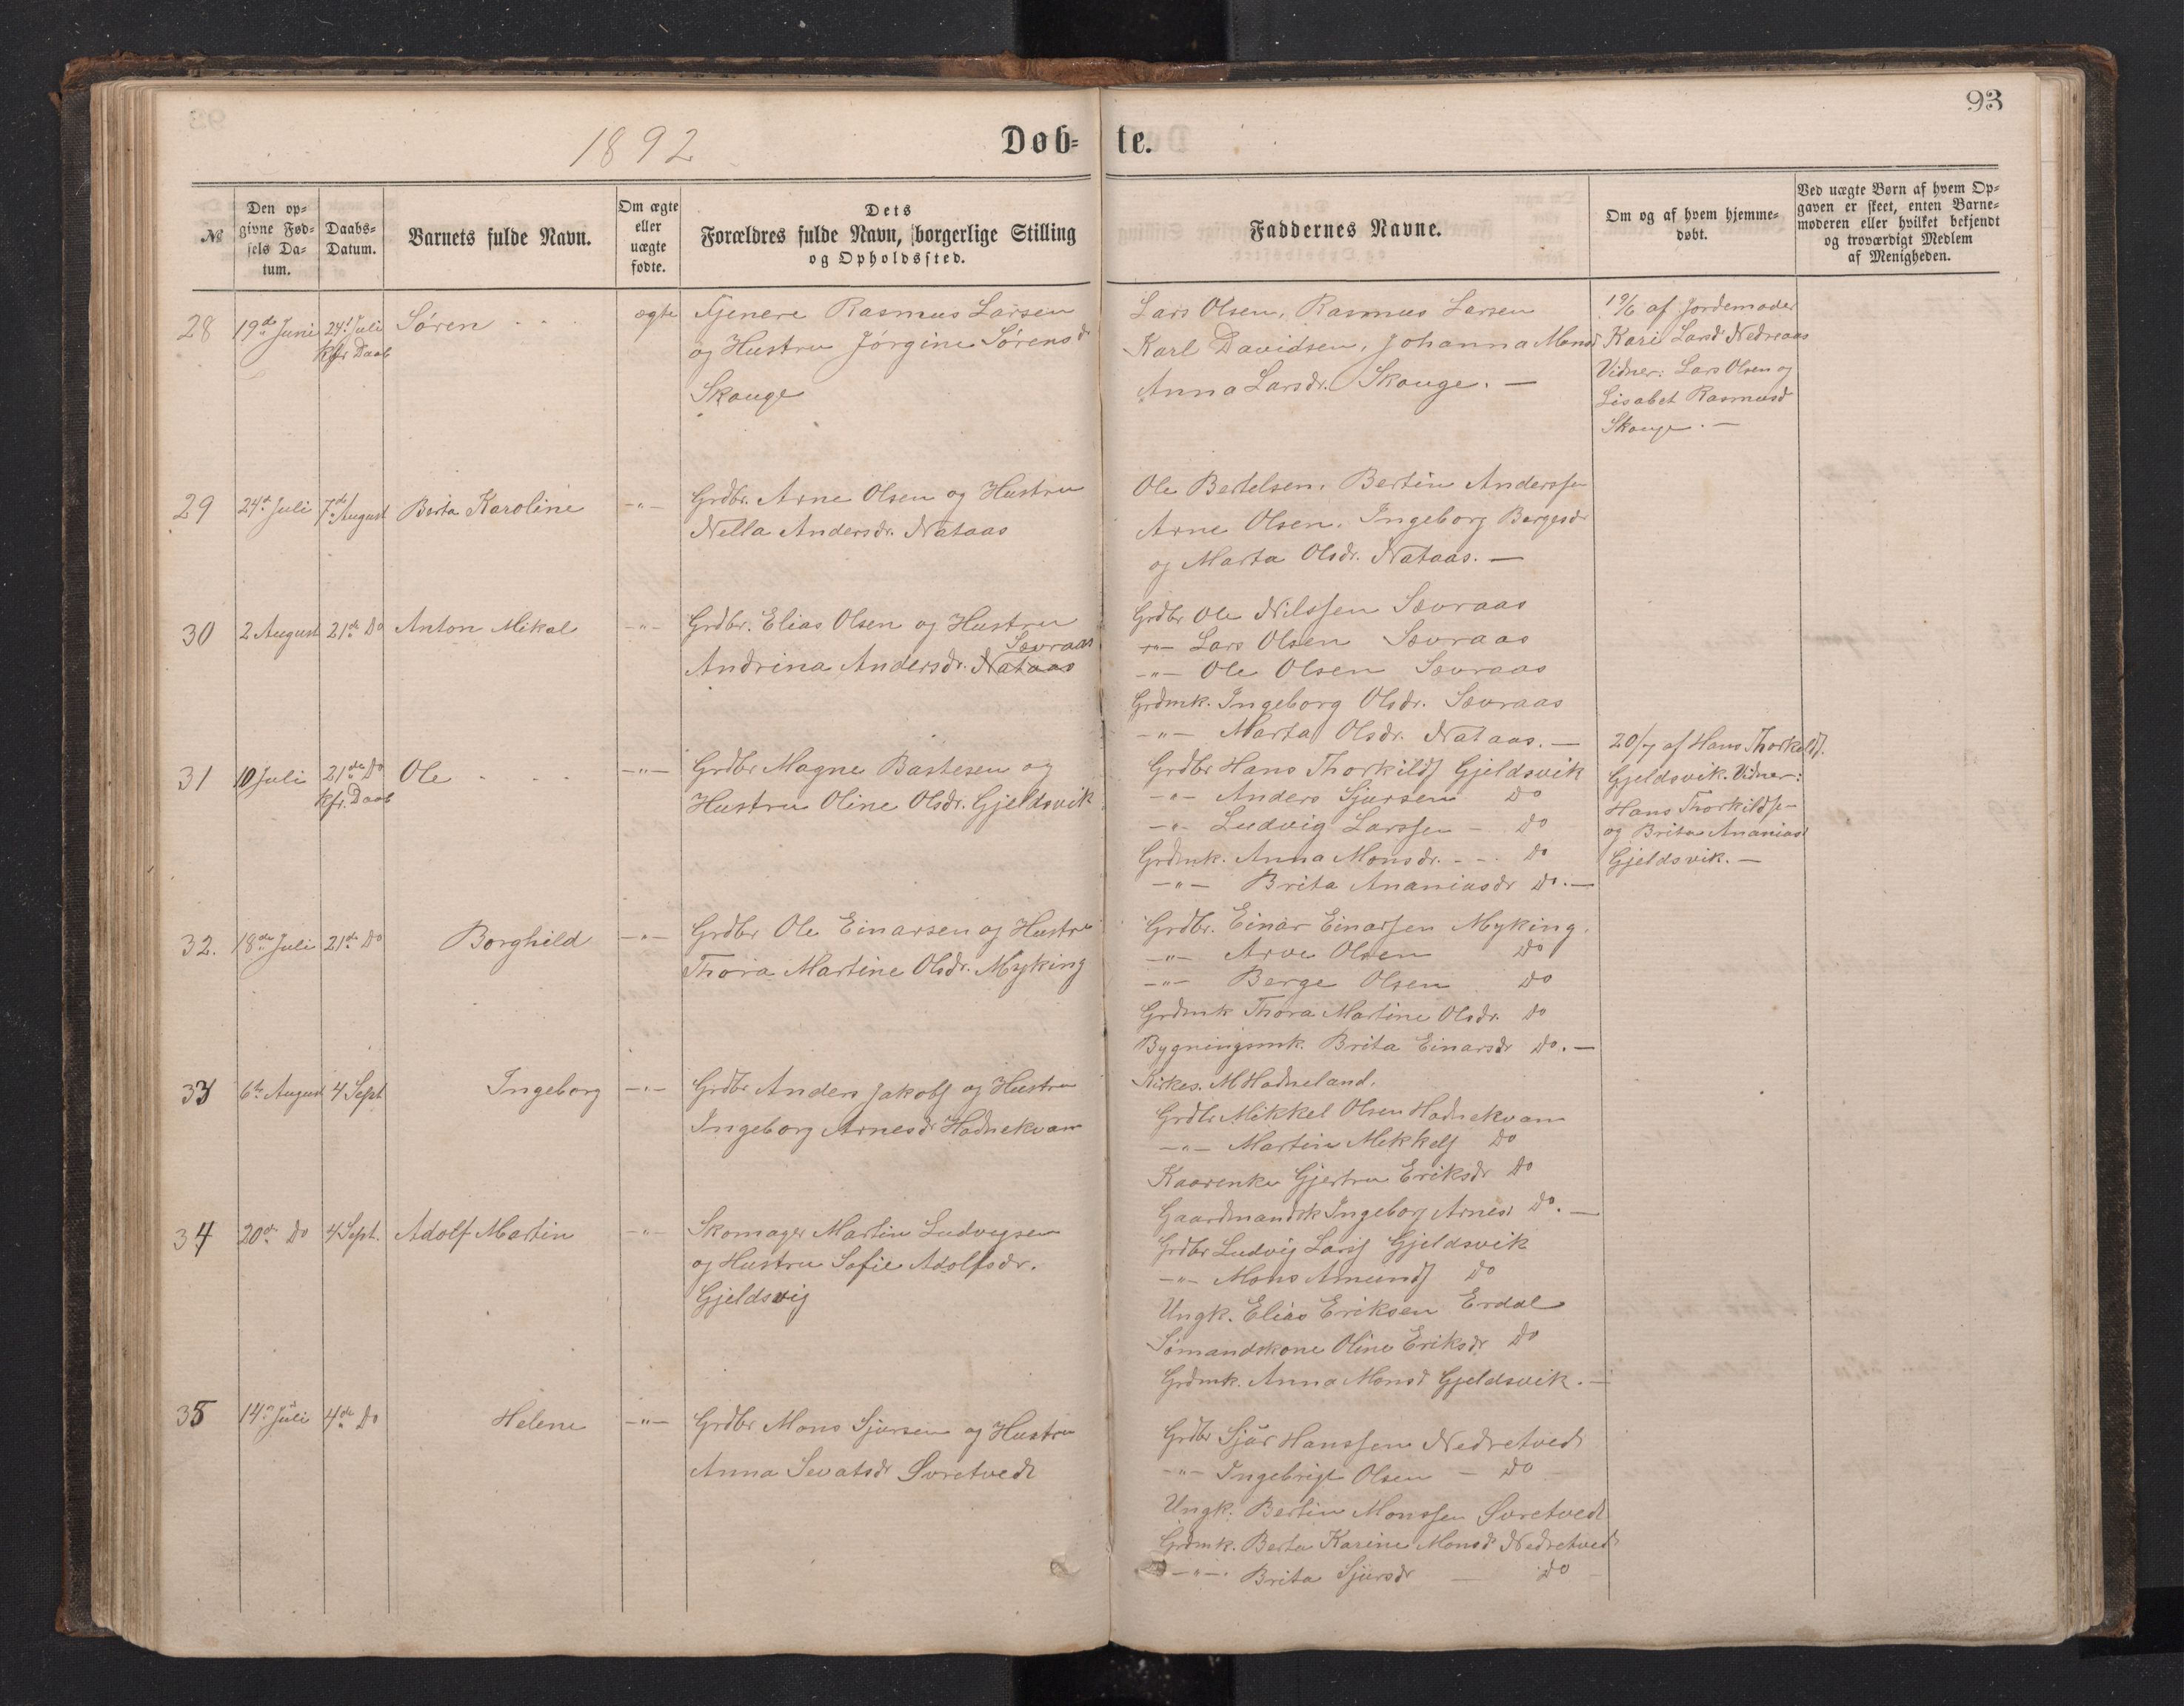 93
1892
Døb= te.
№
Den op=
givne Fød=
sels Da=
tum.
Daabs=
Datum.
Barnets fulde Navn.
Om ægte
eller
uægte
fødte.
Dets
Forældres fulde Navn, borgerlige Stilling
og Opholdssted.
Faddernes Navne.
Om og af hvem hjemme=
døbt.
Ved uægte Børn af hvem Op=
gaven er skeet, enten Barne=
moderen eller hvilket bekjendt
og troværdigt Medlem
af Menigheden.
28 19de Juni 24d Juli Søren ægte Tjenere Rasmus Larsen
Kfr. Daab og Hustru Jørgine Sørensdr
Skauge
Lars Olsen, Rasmus Larsen
Karl Davidsen, Johanna Monsd
Anna Larsdr. Skauge. —
19/6 af Jordemoder
Kari Larsd Nedreaas
Vidner: Lars Olsen og
Lisabet Rasmusd
Skauge. —
29 24de Juli 7de August Berta Karoline -"- Grdbr. Arne Olsen og Hustru
Nella Andersdr. Nataas
Ole Bertelsen, Bertin Anderssen
Arne Olsen, Ingeborg Børgesdr
og Marta Olsdr. Nataas. —
30 2 August 21de Do Anton Mikal -"- Grdbr. Elias Olsen og Hustru
Sævraas
Andrina Andersdr. Nataas
Grdbr Ole Nilssen Sævraas
-"- Lars Olsen Sævraas
-"- Ole Olsen Sævraas
Grdmk. Ingeborg Olsdr. Sævraas
-"- Marta Olsdr. Nataas. —
31 10 Juli 21de Do Ole -"- Grdbr Magne Bastesen og
Kfr. Daab Hustru Oline Olsdr. Gjeldsvik
Grdbr Hans Thorkilds Gjeldsvik
-"- Anders Sjursen Do
-"- Ludvig Larssen - Do
Grdmk. Anna Monsdr. - - Do
-"- Brita Ananiasdr Do. —
20/7 af Hans Thorkilds.
Gjeldsvik. Vidner:
Hans Thorkildse-
og Brita Ananiasd
Gjeldsvik. —
32. 18de Juli 21de Do Borghild -"- Grdbr Ole Einarsen og Hustru
Thora Martine Olsdr. Myking
Grdbr. Einar Einarsen Myking.
-"- Arve Olsen Do
-"- Berge Olsen Do
Grdmk Thora Martine Olsdr. Do
Bygningsmk. Brita Einarsdr Do. —
33 6te August 4 Sept Ingeborg -"- Grdbr Anders Jakobs og Hustru
Ingeborg Arnesdr Hodnekvam
Kirkes. M Hodneland.
Grdbr Mikkel Olsen Hodnekvam
-"- Martin Mikkels Do
Kaarenke Gjertru Eriksdr Do
Gaardmandsk Ingeborg Arnesd Do. —
34 20de Do 4 Sept. Adolf Martin -"- Skomager Martin Ludvigsen
og Hustru Sofie Adolfsdr.
Gjeldsvig
Grdbr Ludvig Lars Gjeldsvik
-"- Mons Amunds Do
Ungk. Elias Eriksen Erdal
Sømandskone Oline Eriksdr. Do
Grdmk. Anna Monsd Gjeldsvik. —
35 14de Juli 4de Do Helene -"- Grdbr Mons Sjursen og Hustru
Anna Sevatsdr Øvretvedt
Grdbr Sjur Hanssen Nedretvedt
-"- Ingebrigt Olsen - Do
Ungk. Bertin Monssen Øvretvedt
Grdmk. Berta Karine Monsd Nedretvedt
-"- Brita Sjursdr — Do